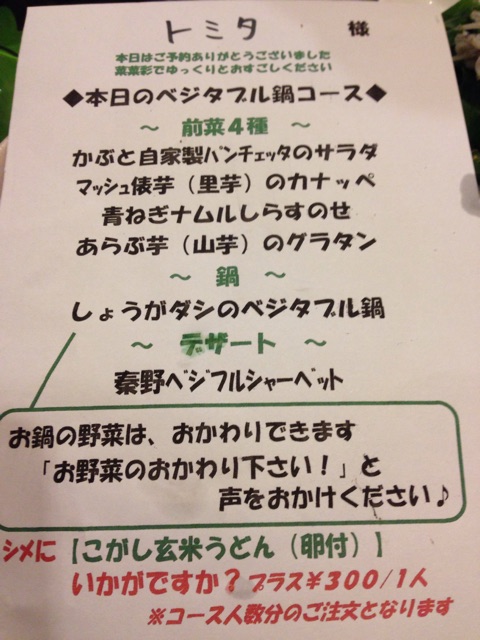 トミタ 様
本日はご予約ありがとうございました
菜菜彩でゆっくりとおすごしください
◆本日のベジタブル鍋コース◆
～ 前菜4種 ～
かぶと自家製パンチェッタのサラダ
マッシュ俵芋（里芋）のカナッペ
青ねぎナムルしらすのせ
あらぶ芋（山芋）のグラタン
～ 鍋 ～
しょうがダシのベジタブル鍋
～ デザート ～
秦野ベジフルシャーベット
お鍋の野菜は、おかわりできます
「お野菜のおかわり下さい！」と
声をおかけください♪
シメに【こがし玄米うどん（卵付）】
いかがですか？プラス¥300/1人
※コース人数分のご注文となります